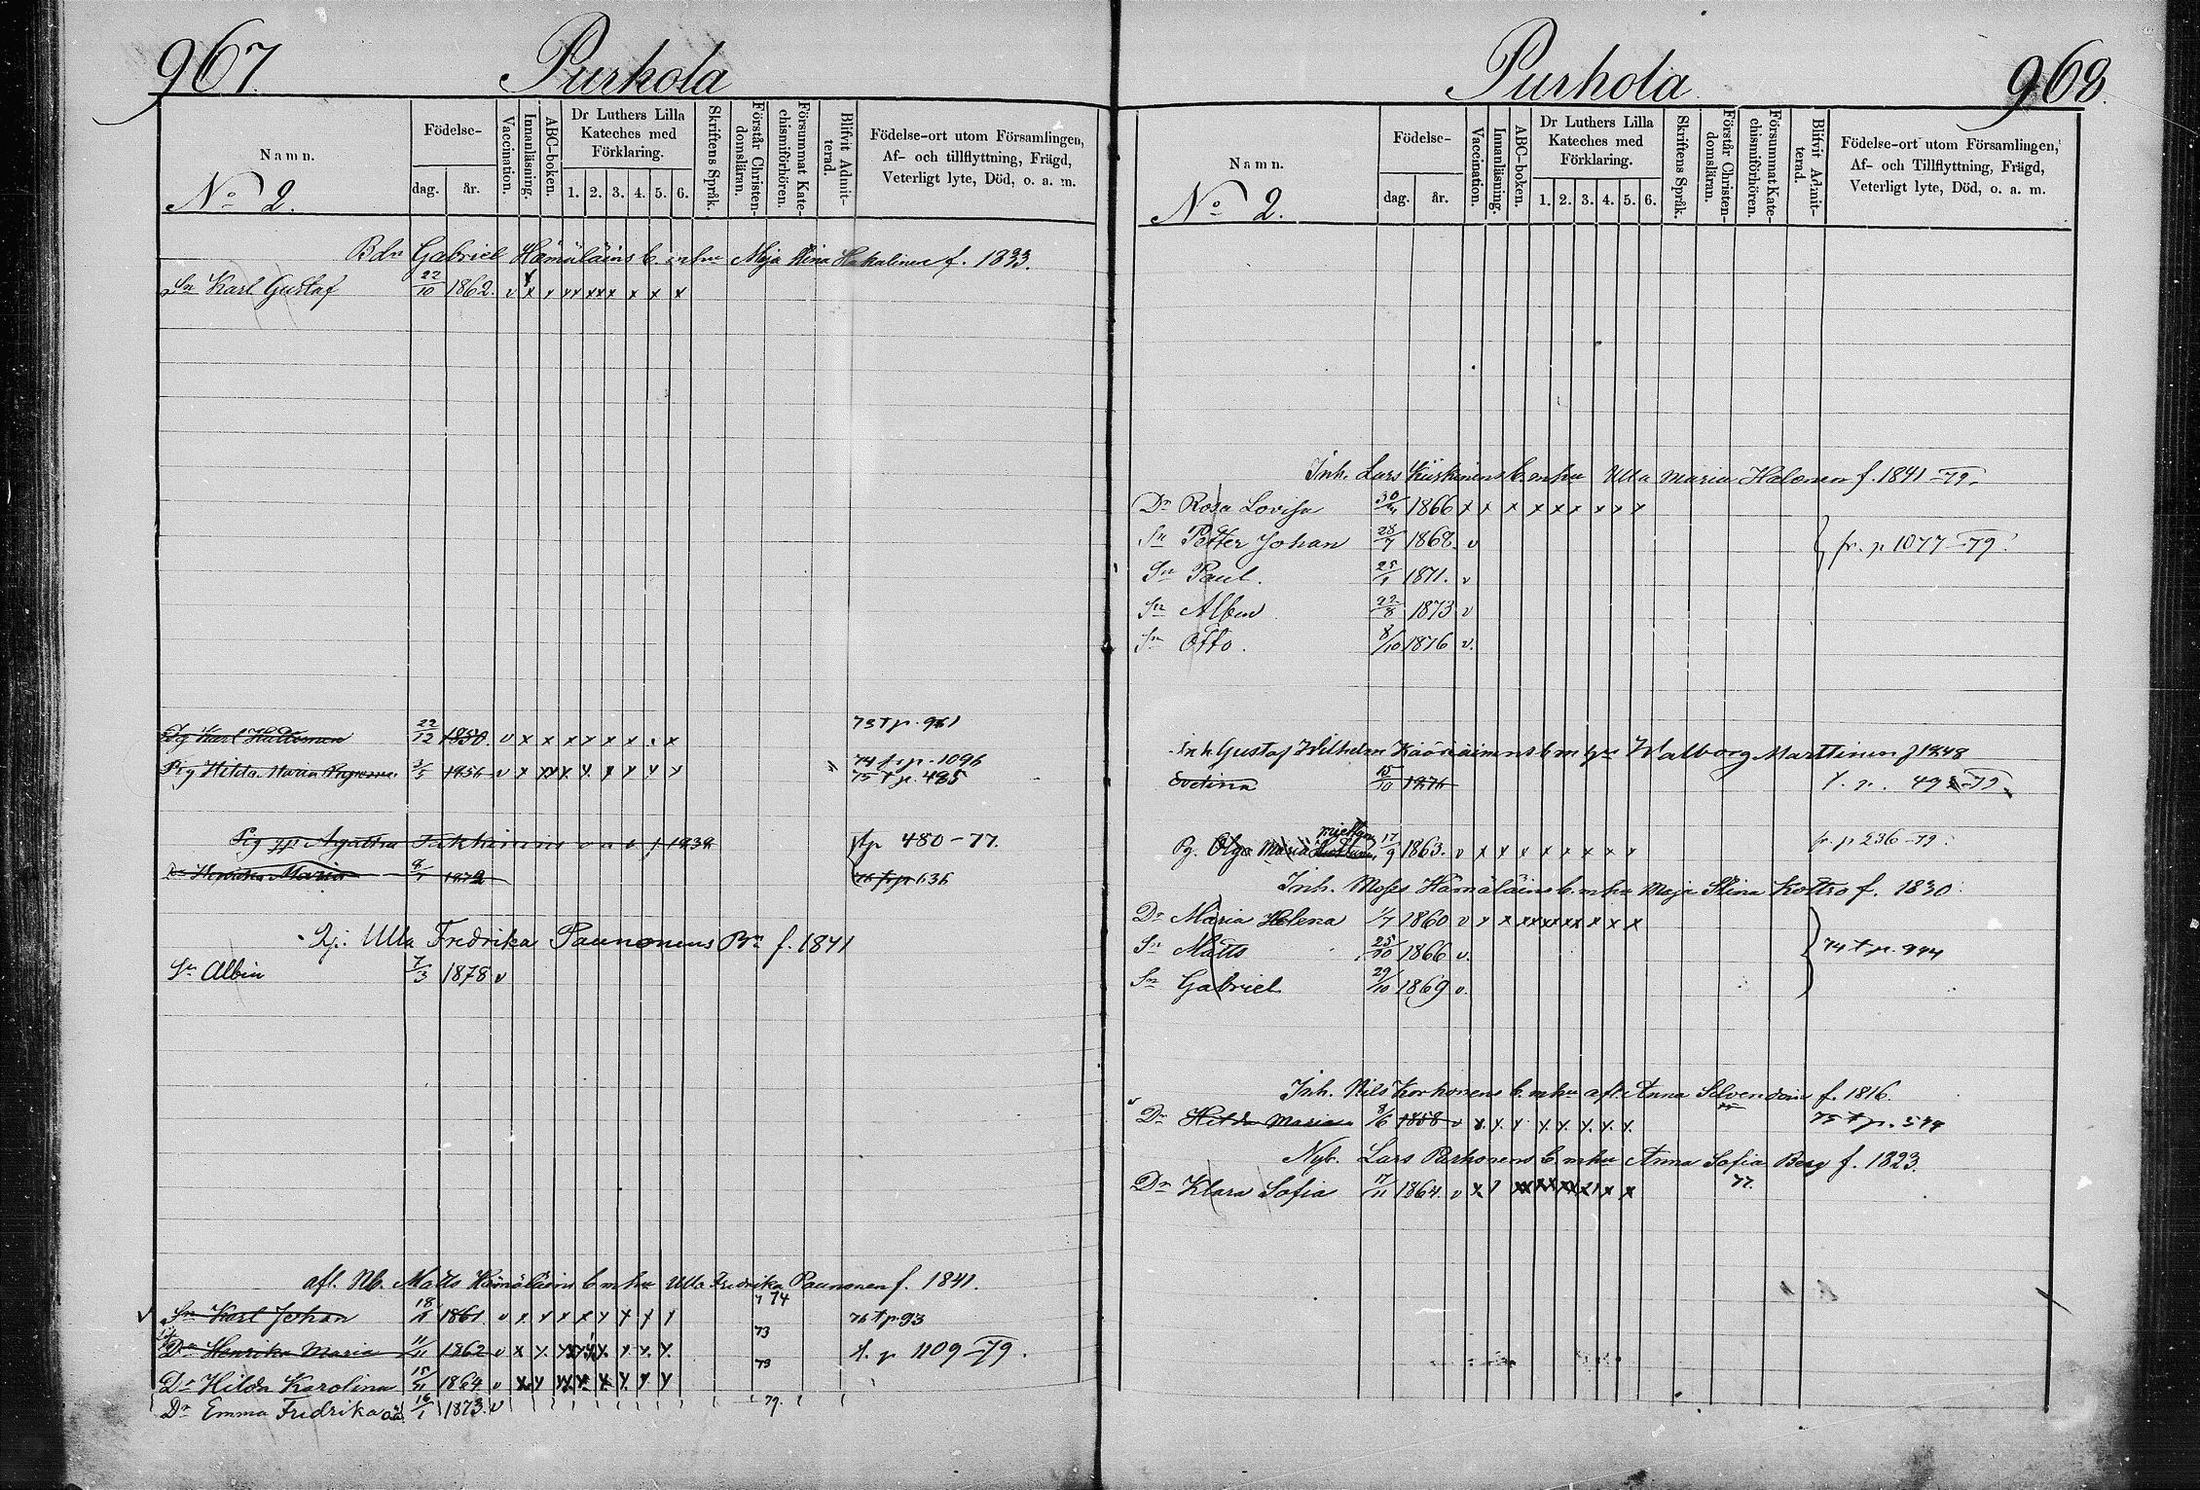 967. Purhola
Namn.
Födelse-
dag. år.
Vaccination.
Innanläsning.
ABC-boken.
Dr Luthers Lilla Kateches med Förklaring.
1. 2. 3. 4. 5. 6.
Skriftens Språk.
Förstår Christen-domsläran.
Försummat Kate-chismiförhören.
Blifvit Admit-terad.
Födelse-ort utom Församlingen,
Af- och tillflyttning, Frägd,
Veterligt lyte, Död, o. a. m.
No 2.
Bdn Gabriel Hämäläins b. m hu Maja Stina Hakalinen f. 1833.
Sn Karl Gustaf 22/10 1862. v x x x x x x x x x x
Karl 22/12 1850. v x x x x x x x 73 t p. 961
Pig Hilda Maria 3/5 1856 v x x x x x x x x x 74 fr p. 1096
75 t p. 485
Pig Agatha f 1838 t p 480-77.
Dr Henrika Maria 9/1 1872 636
Ulla Fredrika Paunonens f. 1841
Sn Albin 7/3 1878 v
afl. Nb. Matts Hämäläins b m hu Ulla Fredrika Paunonen f. 1841.
74
Sn Karl Johan 18/11 1861 v x x x x x x x x 76 t p 93
73
Dr Henrika Maria 11/11 1862 v x x x x x x x x t. p 1109-79.
73
Dr Hilda Karolina 15/11 1864 v x x x x x x x x
Dr Emma Fredrika oä 16/1 1873. v 79.
Purhola 968.
Namn.
Födelse-
dag. år.
Vaccination.
Innanläsning.
ABC-boken.
Dr Luthers Lilla Kateches med Förklaring.
1. 2. 3. 4. 5. 6.
Skriftens Språk.
Förstår Christen-domsläran.
Försummat Kate-chismiförhören.
Blifvit Admit-terad.
Födelse-ort utom Församlingen,
Af- och Tillflyttning, Frägd,
Veterligt lyte, Död, o. a. m.
No 2.
Inh. Lars Kiiskinens b. m hu Ulla Maria Halonen f. 1841-79-
Dr Rosa Lovisa 30/4 1866 x x x x x x x x x
Sn Petter Johan 28/7 1868. v fr. p 1077-79.
Sn Paul. 25/1 1871. v
Sn Albin 22/8 1873 v
Sn Otto. 8/10 1876 v.
Inh. Gustaf Wilhelm Kääriäinens b m hu Walborg Marttinen f 1848
Evelina 15/10 1876 t. p. 49 -79
Pg. Olga Maria 17/9 1863. v x x x x x x x x fr. p 236-79
Inh. Moses Hämäläins b. m hu Maja Stina Kottro f. 1830.
Dr Maria Helena 1/7 1860 v x x x x x x x x x x
Sn Matts 25/10 1866 v. 74 t p. 994
Sn Gabriel 29/10 1869 v.
Inh. Nils Korhonens b. m hu afl. Anna Silvendoin f. 1816.
Dr Hilda Maria 8/6 1858 v x. x. x x. x. x. x. x. 75 t p. 544
Nyb. Lars Parkonens b. m hu Anna Sofia Berg f. 1823.
77.
Dr Klara Sofia 17/11 1864. v x x x x x x x x x